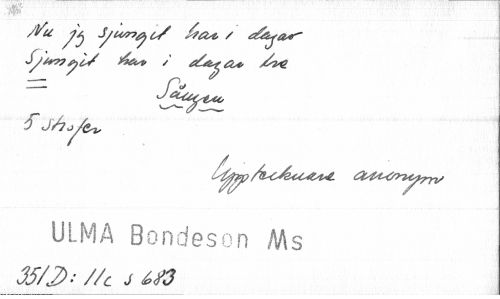 Nu jg sjungit har i dagar
Sjungit har i dagar tre
Sången
5 strofer
Upptecknare anonym
ULMA Bondeson Ms
351D: 11c s 683